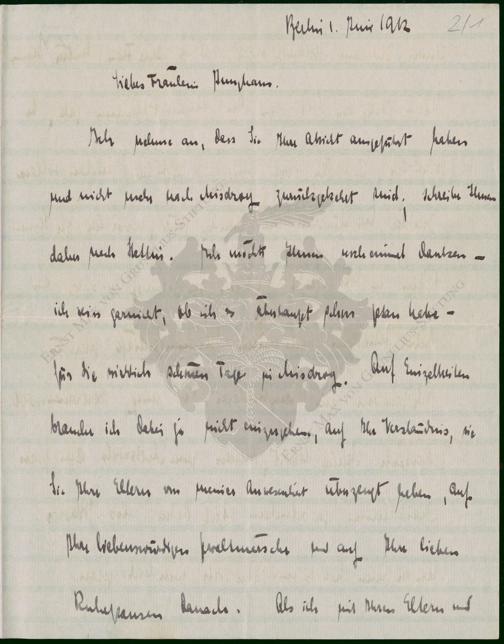 Berlin 1. Juni 1912
2/1
Liebes Fräulein Junghans.
Ich nehme an, dass Sie Ihre Absicht ausgeführt haben
und nicht mehr nach Misdroy zurückgekehrt sind, schreibe Ihnen
daher nach Stettin. Ich möchte Ihnen noch einmal danken –
ich weiss garnicht, ob ich es überhaupt schon getan habe –
für die wirklich schönen Tage in Misdroy. Auf Einzelheiten
brauche ich dabei ja nicht einzugehen, auf Ihr Verständnis, wie
Sie Ihre Eltern von meiner Anwesenheit überzeugt haben, auf
Ihre liebenswürdigen und auf Ihre lieben
danach. Als ich mit Ihren Eltern und
ERNST MAX VON GRUNELIUS-STIFTUNG
ERNST MAX VON GRUNELIUS-STIFTUNG